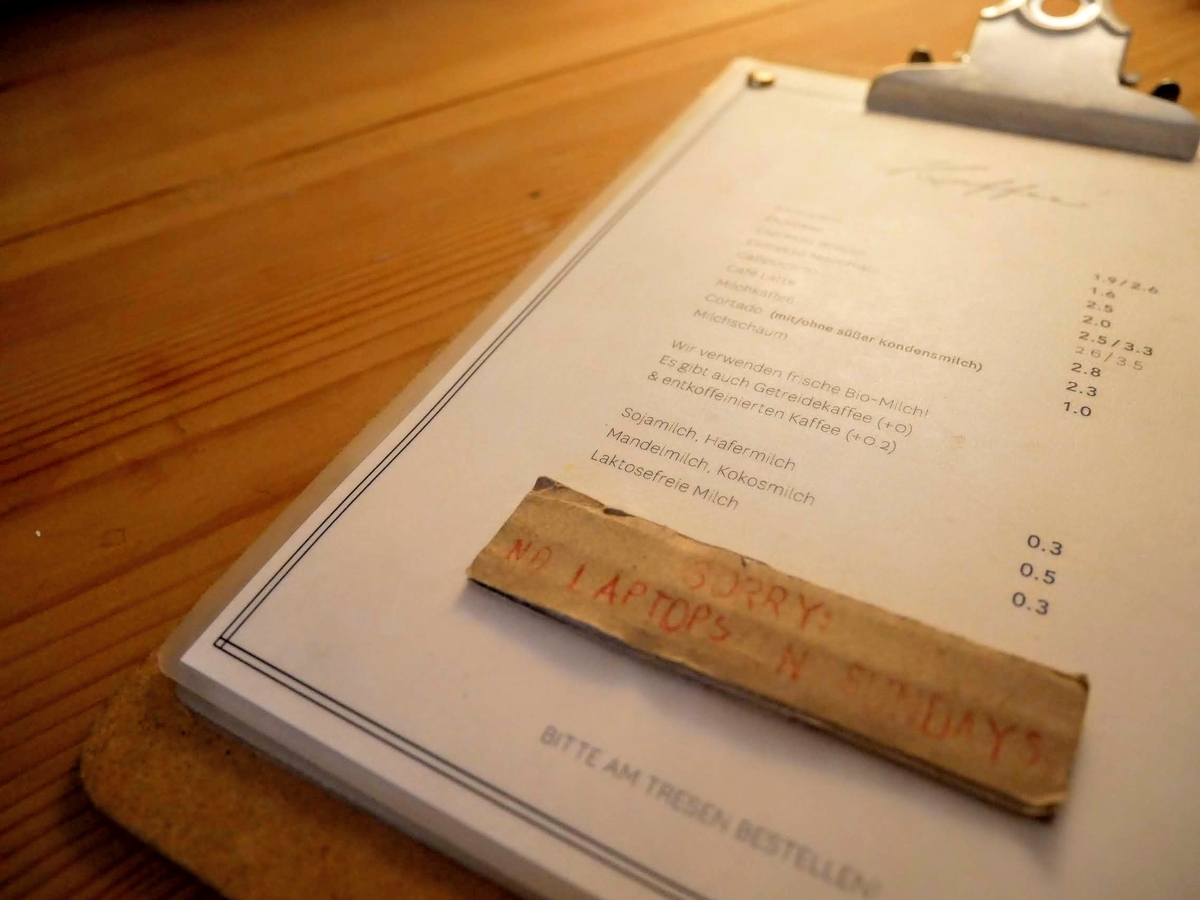 Kaffee
Cappuccino
Café Latte
Milchkaffee
Cortado (mit/ohne süßer Kondensmilch)
Milchschaum
1.9/2.6
1.6
2.5
2.0
2.5/3.3
2.6/3.5
2.8
2.3
1.0
Wir verwenden frische Bio-Milch!
Es gibt auch Getreidekaffee (+0)
& entkoffeinierten Kaffee (+0.2)
Sojamilch, Hafermilch
Mandelmilch, Kokosmilch
Laktosefreie Milch
0.3
0.5
0.3
SORRY:
NO LAPTOPS IN SUNDAYS
BITTE AM TRESEN BESTELLEN!